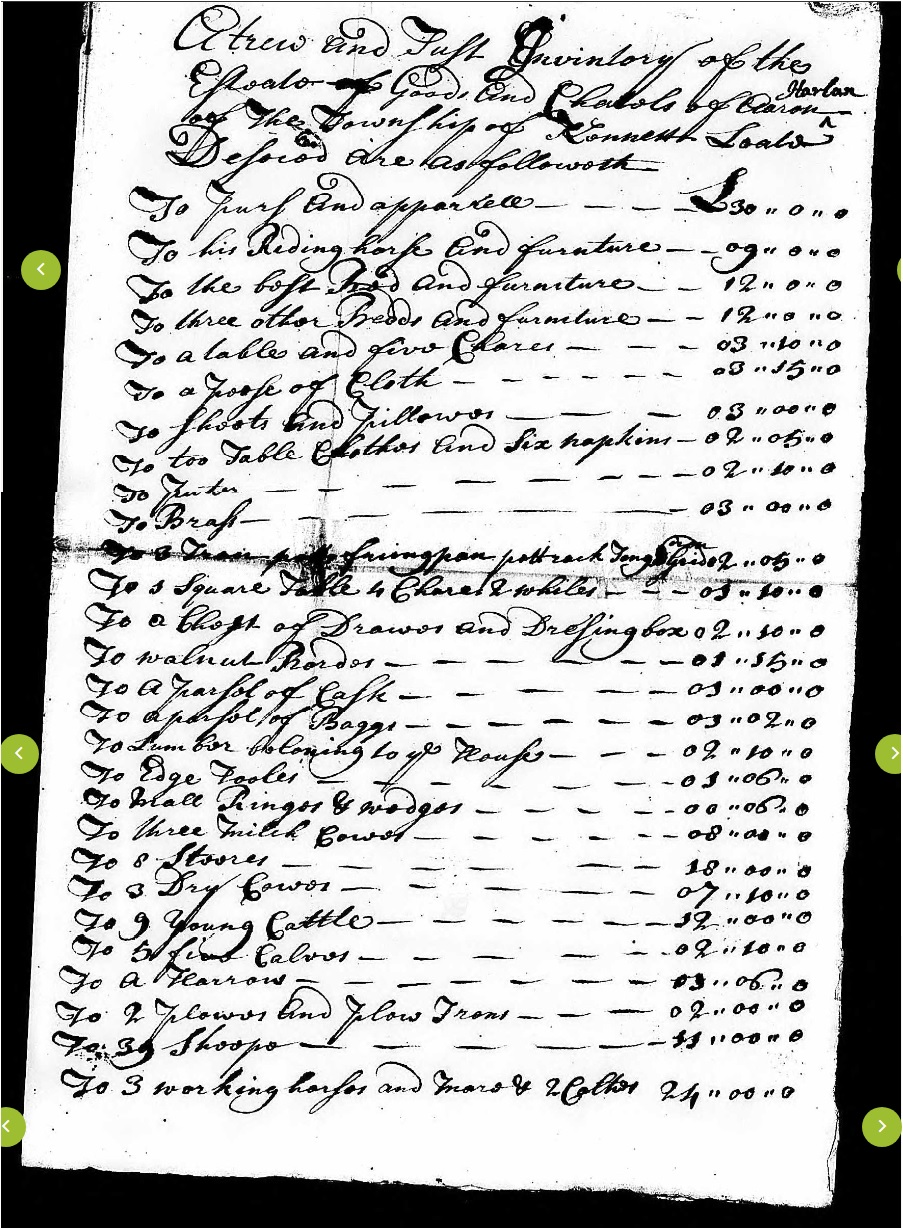 A trew and Just Invintory of the
Esteate of Goods and Chatols of Aaron Harlan
of The Township of Kennett Leate
Desesed are as followeth
To purs and apparrell — — £30 " 0 " 0
To his Riding horse and furnture — — 09 " 0 " 0
To the best Bed and furniture — — 12 " 0 " 0
To three other Bedds and furniture — — 12 " 0 " 0
To a table and five Chares — — — 03 " 10 " 0
To a peese of Cloth — — — — — — 03 " 15 " 0
To sheets and Pillowes — — — 03 " 00 " 0
To too Table Clothes and six napkins — 02 " 05 " 0
To Puter — — — — — — — — 02 " 10 " 0
To Brass — — — — — — 03 " 00 " 0
To 3 Iron potts friingpan pottrack Tongs 02 " 05 " 0
To 1 Square Table 4 Chares 2 whiles — — — 01 " 10 " 0
To a Chest of Drawes and Dresingbox 02 " 10 " 0
To walnut Bordes — — — — — — 01 " 15 " 0
To A parsel of Cask — — — — — — 01 " 00 " 0
To a parsel of Baggs — — — — — — 01 " 02 " 0
To Lumber beloning to ye House — — — 02 " 10 " 0
To Edge Tooles — — — — — — 01 " 06 " 0
To Mall Ringes & wedges — — — — — 00 " 06 " 0
To three Milch Cowes — — — — — 08 " 00 " 0
To 8 Steeres — — — — — 18 " 00 " 0
To 3 Dry Cowes — — — — — 07 " 10 " 0
To 9 young Cattle — — — — — — 12 " 00 " 0
To 5 five Calves — — — — — 02 " 10 " 0
To A Harrow — — — — — — — 01 " 06 " 0
To 2 plowes and plow Irons — — — — 02 " 00 " 0
To 39 Sheepe — — — — — — 11 " 00 " 0
To 3 working horses and mare & 2 Coltes 24 " 00 " 0